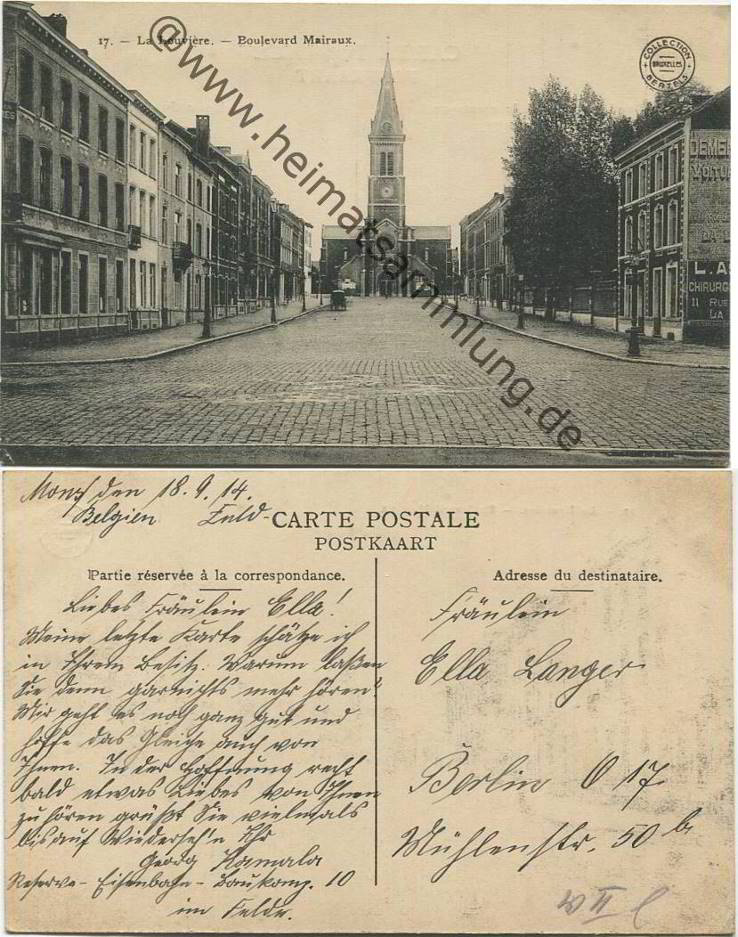 17. — La Louvière. — Boulevard Mairaux.
COLLECTION
BRUXELLES
BERZELS
@www.heimatsammlung.de
DEME
VOITU
L. A
CHIRURG
11 RUE
LA
Mons den 18.9.14.
Belgien Feld-
CARTE POSTALE
POSTKAART
Partie réservée à la correspondance.
Adresse du destinataire.
Liebes Fräulein Ella!
Meine letzte Karte schätze ich
in Ihrem Besitz. Warum laßen
Sie denn garnichts mehr hören?
Mir geht es noch ganz gut und
hoffe das Gleiche auch von
Ihnen. In der Hoffnung recht
bald etwas Liebes von Ihnen
zu hören grüßt Sie vielmals
bis auf Wiederseh'n Ihr
Georg Hamala
Reserve-Eisenbahn-Baukomp. 10
im Felde.
Fräulein
Ella Langer
Berlin O 17
Mühlenstr. 50 b